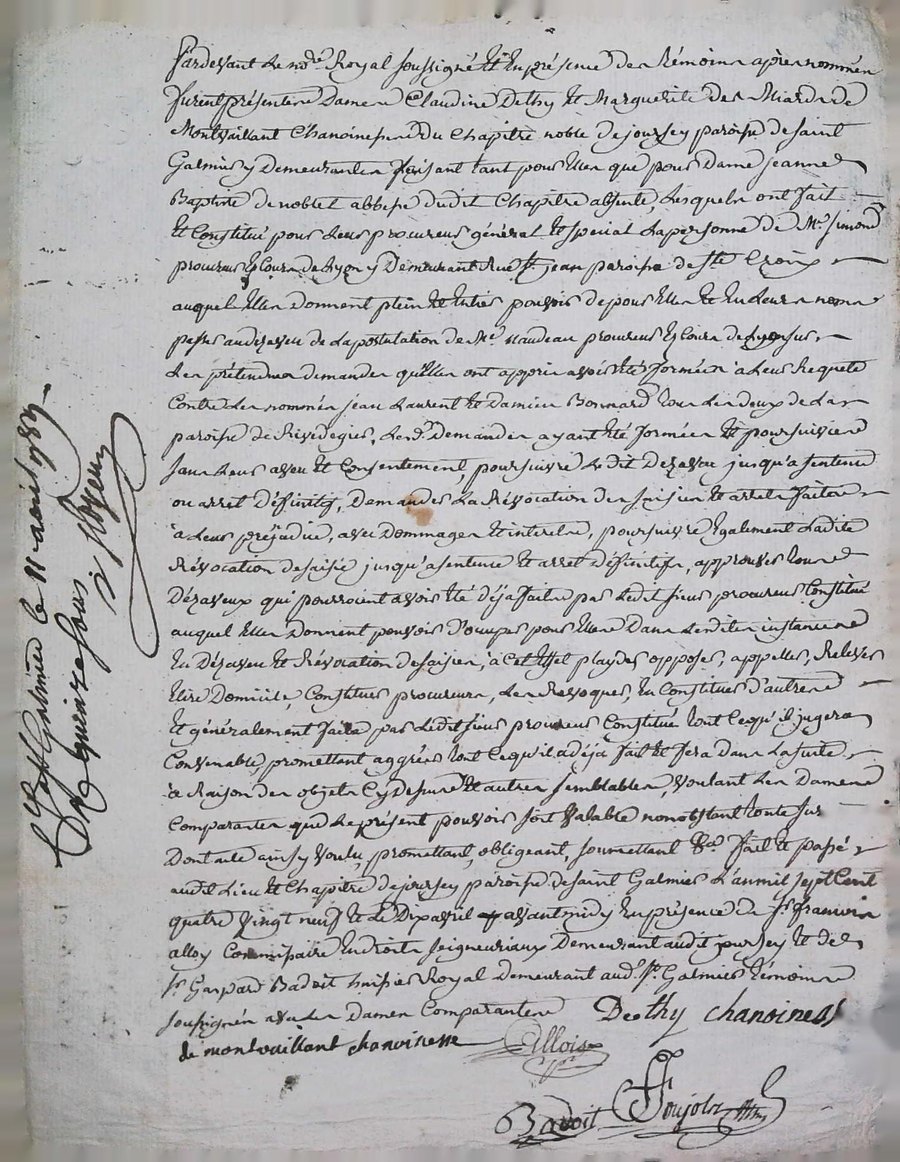 Pardevant Le no.re Royal soussigné Et En présence des témoins après nommés
furent présentes Dames Claudine Dethy Et Marguerite des Miards de
Montvaillant Chanoinesses du Chapitre noble de joursey paroisse de saint
Galmier y Demeurantes faisant tant pour Elles que pour Dame jeanne
Baptiste de noblet abbesse dudit Chapitre absente, Lesquelles ont fait
Et Constitué pour Leur procureur général Et special La personne de Me simond
procureur Es Cours de Lyon y Demeurant Rue St jean paroisse de Ste Croix
auquel Elles donnent plein Et Entier pouvoir de pour Elles Et En Leurs noms
passer au dezaveu de La postulation de Me naudeau procureur Es Cours de Lyon sur
Les prétendues demandes qu'Elles ont appris avoir Eté formées à Leur Requete
Contre Les nommés jean Laurent Et Damien Bonnard tous Les deux de La
paroisse de Rivedegier, Lesd. Demandes ayant Eté formées Et poursuivies
sans Leur aveu Et Consentement, poursuivre Ledit Dezaveu jusqu'a sentence
ou arret Définitif, Demander La Révocation des saisies Et arrets faites
à Leur préjudice, avec Dommages Et interets, poursuivre Egalement Ladite
Révocation de saisie jusqu'a sentence Et arret définitifs, approuver tous
Dézaveux qui pourroient avoir Eté déja faits par Ledit sieur procureur Constitué
auquel Elles donnent pouvoir d'occuper pour Elles Dans Lesdites instances
En Dézaveu Et Révocation de saisies, à Cet Effet plaider opposer, appeller, Relever
Elire Domicile, Constituer procureurs, Les Revoquer, En Constituer d'autres
Et généralement faire par Ledit sieur procureur Constitué tout Ce qu'il jugera
Convenable, promettant aggréer tout Ce qu'il a déja fait Et fera Dans La suite,
à Raison des objets Cy Dessus Et autres semblables, voulant Les Dames
Comparantes que Le présent pouvoir soit valable nonobstant toute sur
Dont acte ainsy voulu, promettant, obligeant, soumettant &a fait Et passé
audit Lieu Et Chapitre de joursey paroisse de saint Galmier L'an mil sept Cent
quatre vingt neuf Et Le Dix avril avant midy En présence de sr françois
alloy Commissaire En droits seigneuriaux Demeurant audit joursey Et de
sr Gaspard Badoit huissier Royal demeurant aud. St Galmier témoins
soussignés avec Les Dames Comparantes Dethy chanoinesse
de montvaillant chanoinesse Allois
Badoit
Cllé à St Galmier le 11 avril 1789
Reçu quinze sous